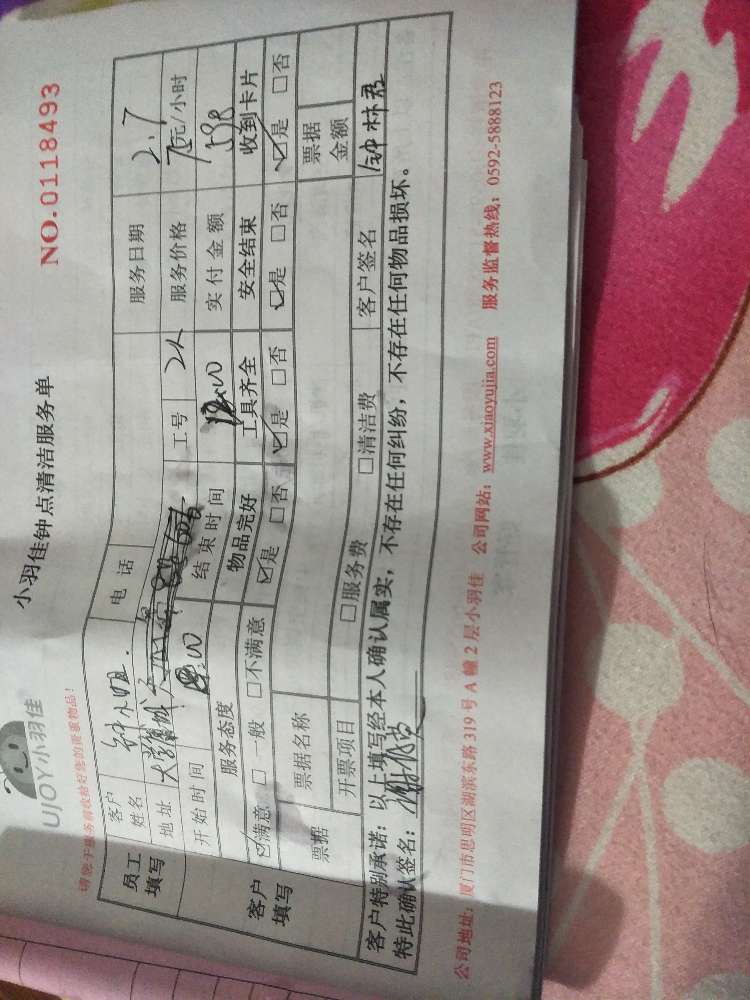 UJOY小羽佳
小羽佳钟点清洁服务单
NO.01118493
请您于服务前收拾好您的贵重物品!
员工填写
客户姓名 钟小姐. 电话 服务日期 2.7
地址 工号 2人 服务价格 元/小时
开始时间 结束时间 实付金额
客户填写
服务态度 物品完好 工具齐全 安全结束 收到卡片
☑满意 □一般 □不满意 ☑是 □否 ☑是 □否 ☑是 □否 ☑是 □否
票据 票据名称 票据金额
开票项目 □服务费 □清洁费 客户签名
客户特别承诺:以上填写经本人确认属实,不存在任何纠纷,不存在任何物品损坏。
特此确认签名:
公司地址:厦门市思明区湖滨东路 319 号 A 幢 2 层小羽佳 公司网站:www.xiaoyujia.com 服务监督热线:0592-5888123